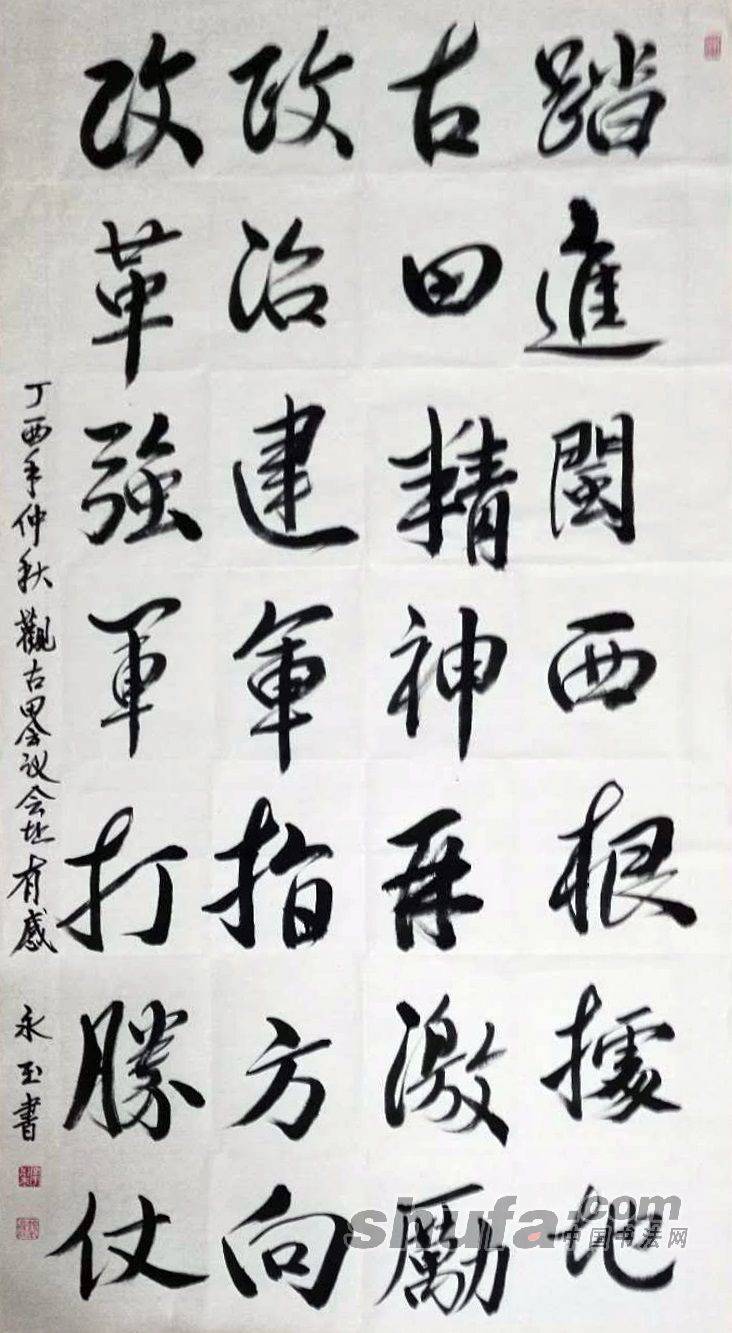 踏進閩西根據地
古田精神再激勵
政治建軍指方向
改革強軍打勝仗
丁酉年仲秋觀古田会议会址有感 永玉書
shufa.com
中国书法网